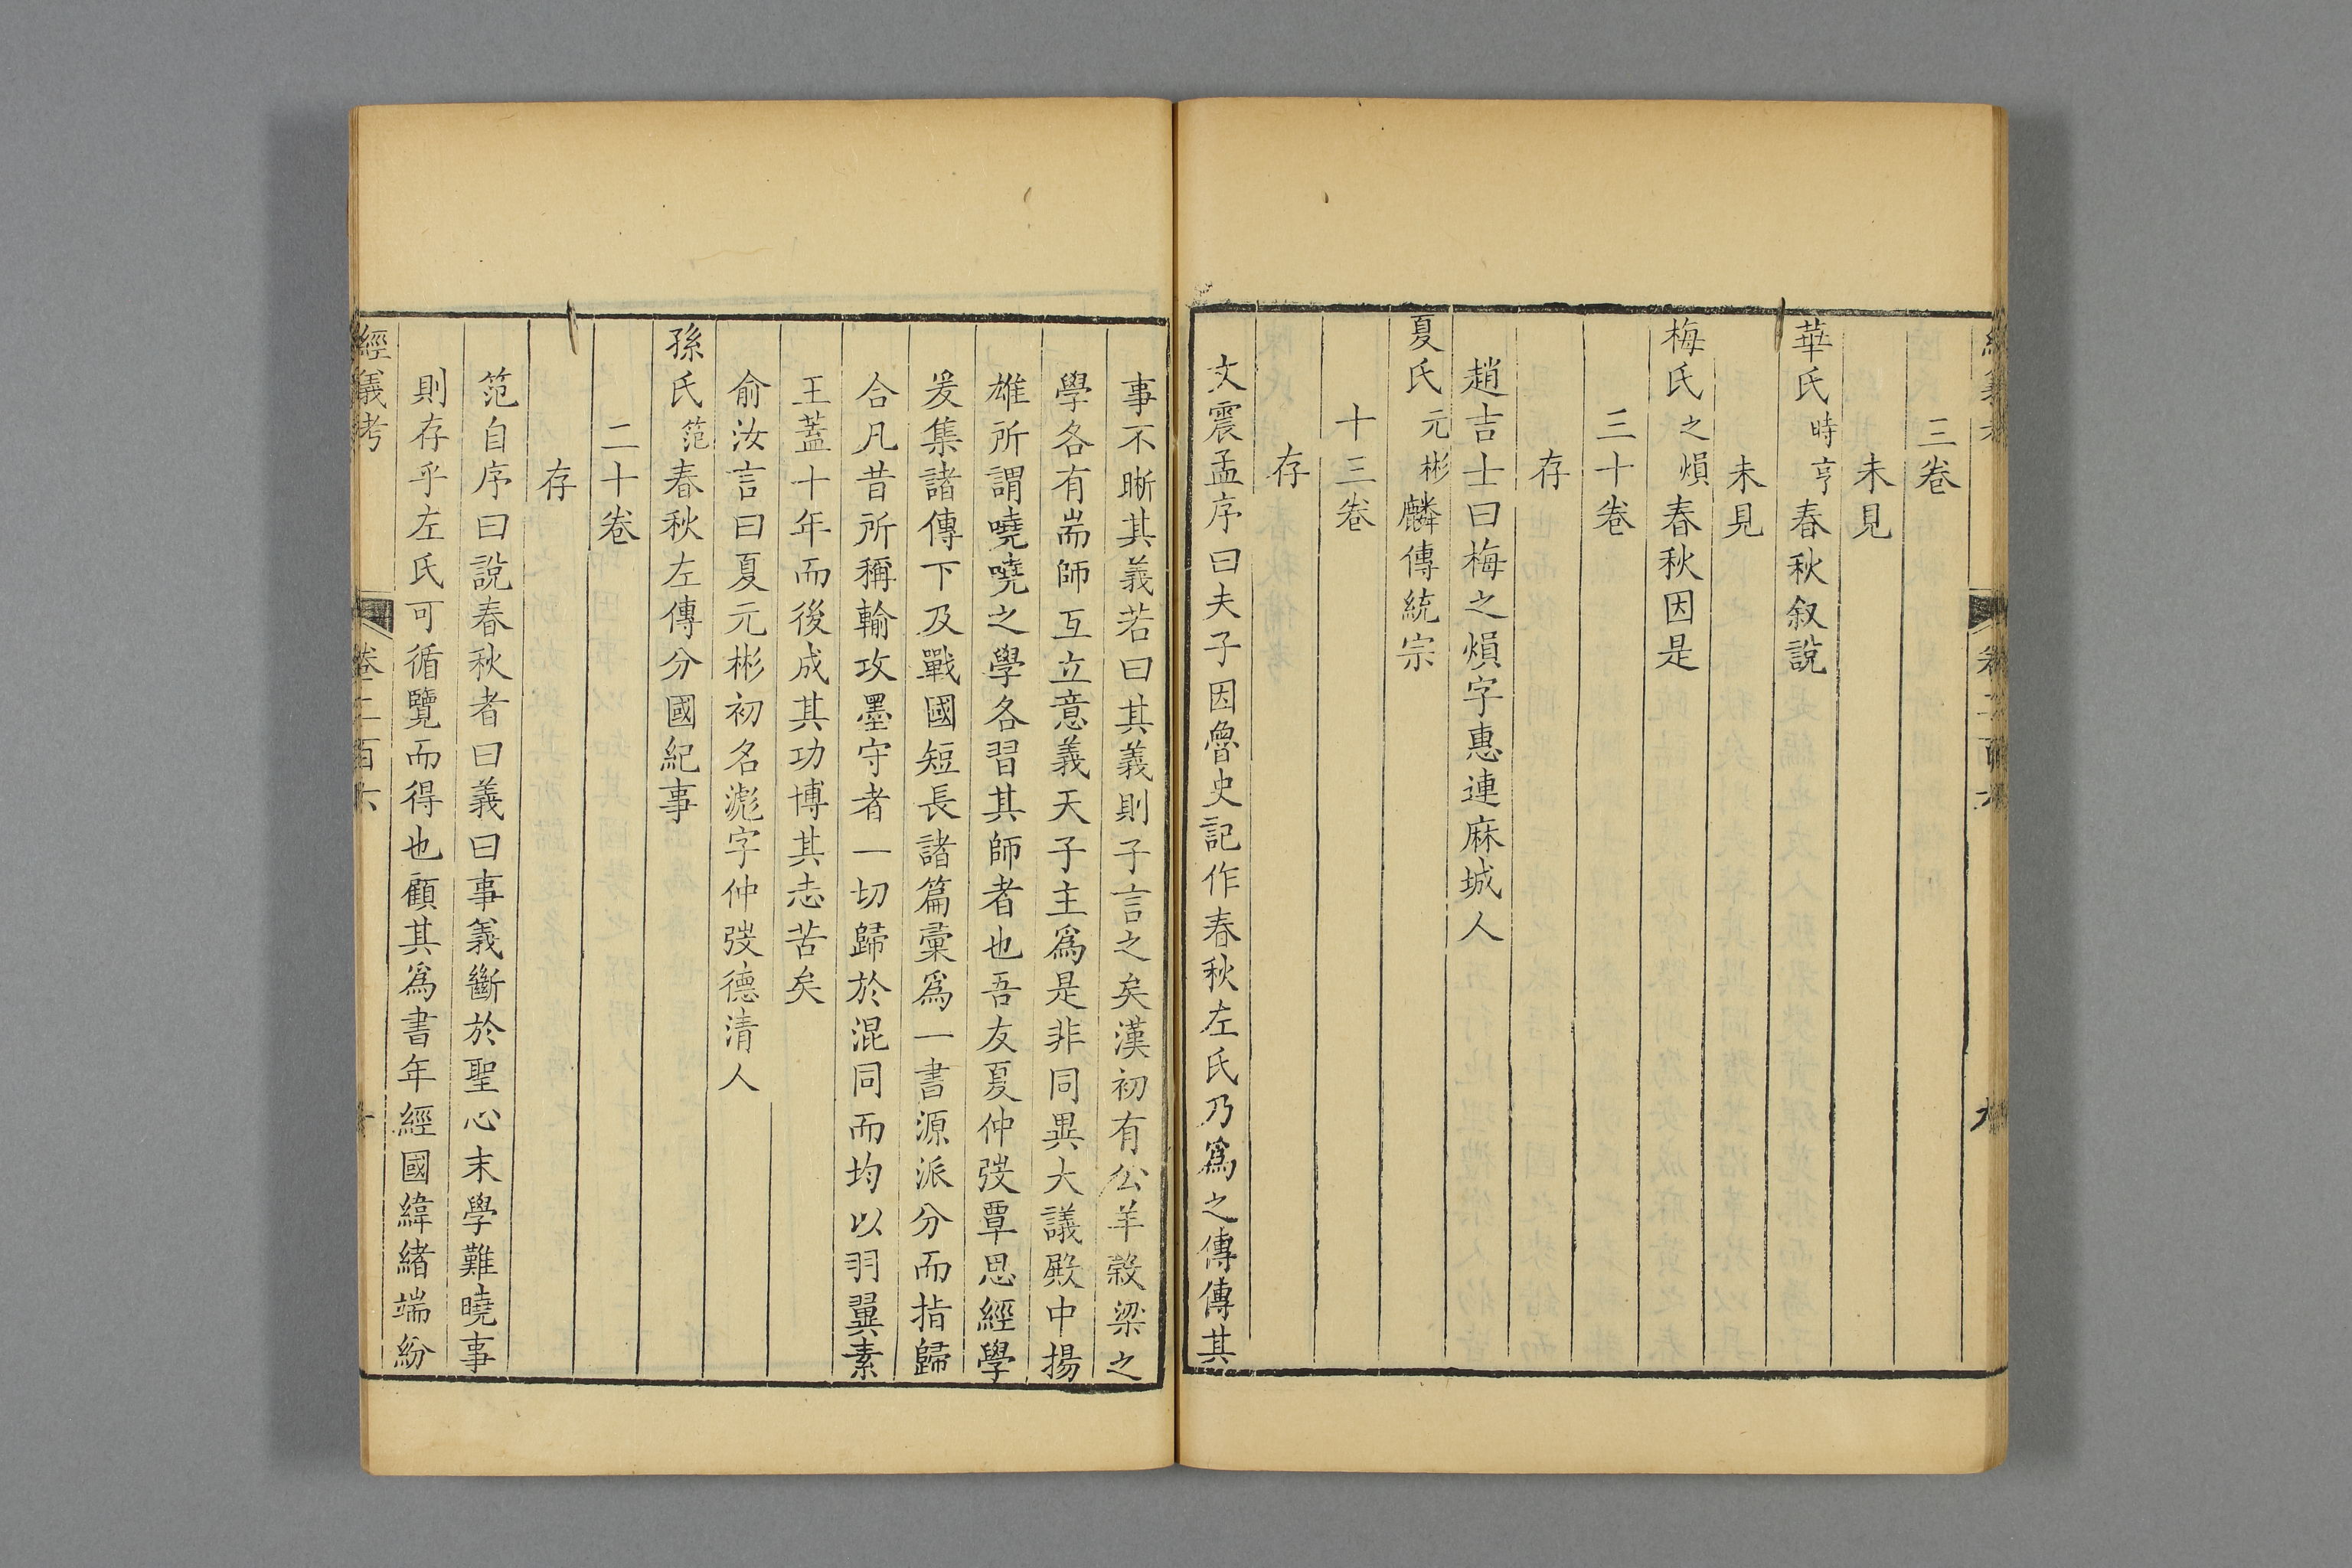 經義考
卷二百六
九
三卷
未見
華氏時亨春秋叙說
未見
梅氏之熉春秋因是
三十卷
存
趙吉士曰梅之熉字惠連麻城人
夏氏元彬麟傳統宗
十三卷
存
文震孟序曰夫子因魯史記作春秋左氏乃爲之傳傳其
事不晰其義若曰其義則子言之矣漢初有公羊穀梁之
學各有耑師互立意義天子主爲是非同異大議殿中揚
雄所謂嘵嘵之學各習其師者也吾友夏仲弢覃思經學
爰集諸傳下及戰國短長諸篇彙爲一書源派分而指歸
合凡昔所稱輸攻墨守者一切歸於混同而均以羽翼素
王蓋十年而後成其功博其志苦矣
俞汝言曰夏元彬初名彪字仲弢德清人
孫氏范春秋左傳分國紀事
二十卷
存
范自序曰說春秋者曰義曰事義斷於聖心末學難曉事
則存乎左氏可循覽而得也顧其爲書年經國緯緒端紛
經義考
卷二百六
十